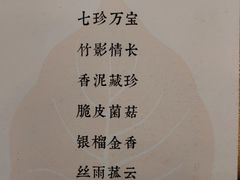 七珍万宝
竹影情长
香泥藏珍
脆皮菌菇
银榴金香
丝雨菰云